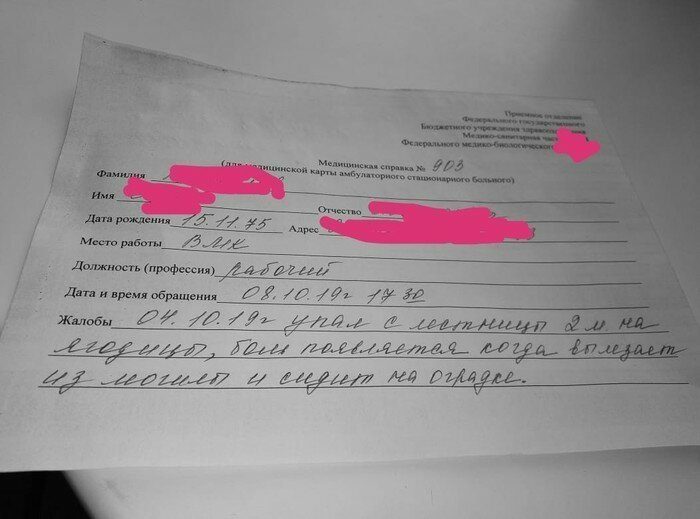 Приемное отделение
Федерального государственного
Бюджетного учреждения здравоохранения
Медико-санитарная час
Федерального медико-биологического
Медицинская справка № 903
(для медицинской карты амбулаторного стационарного больного)
Фамилия
Имя Отчество
Дата рождения 15.11.75 Адрес
Место работы ВМК
Должность (профессия) рабочий
Дата и время обращения 08.10.19г 17 30
Жалобы 04.10.19г упал с лестницы 2 м на
ягодицы, боли появляется когда вылезает
из могилы и сидит на оградке.